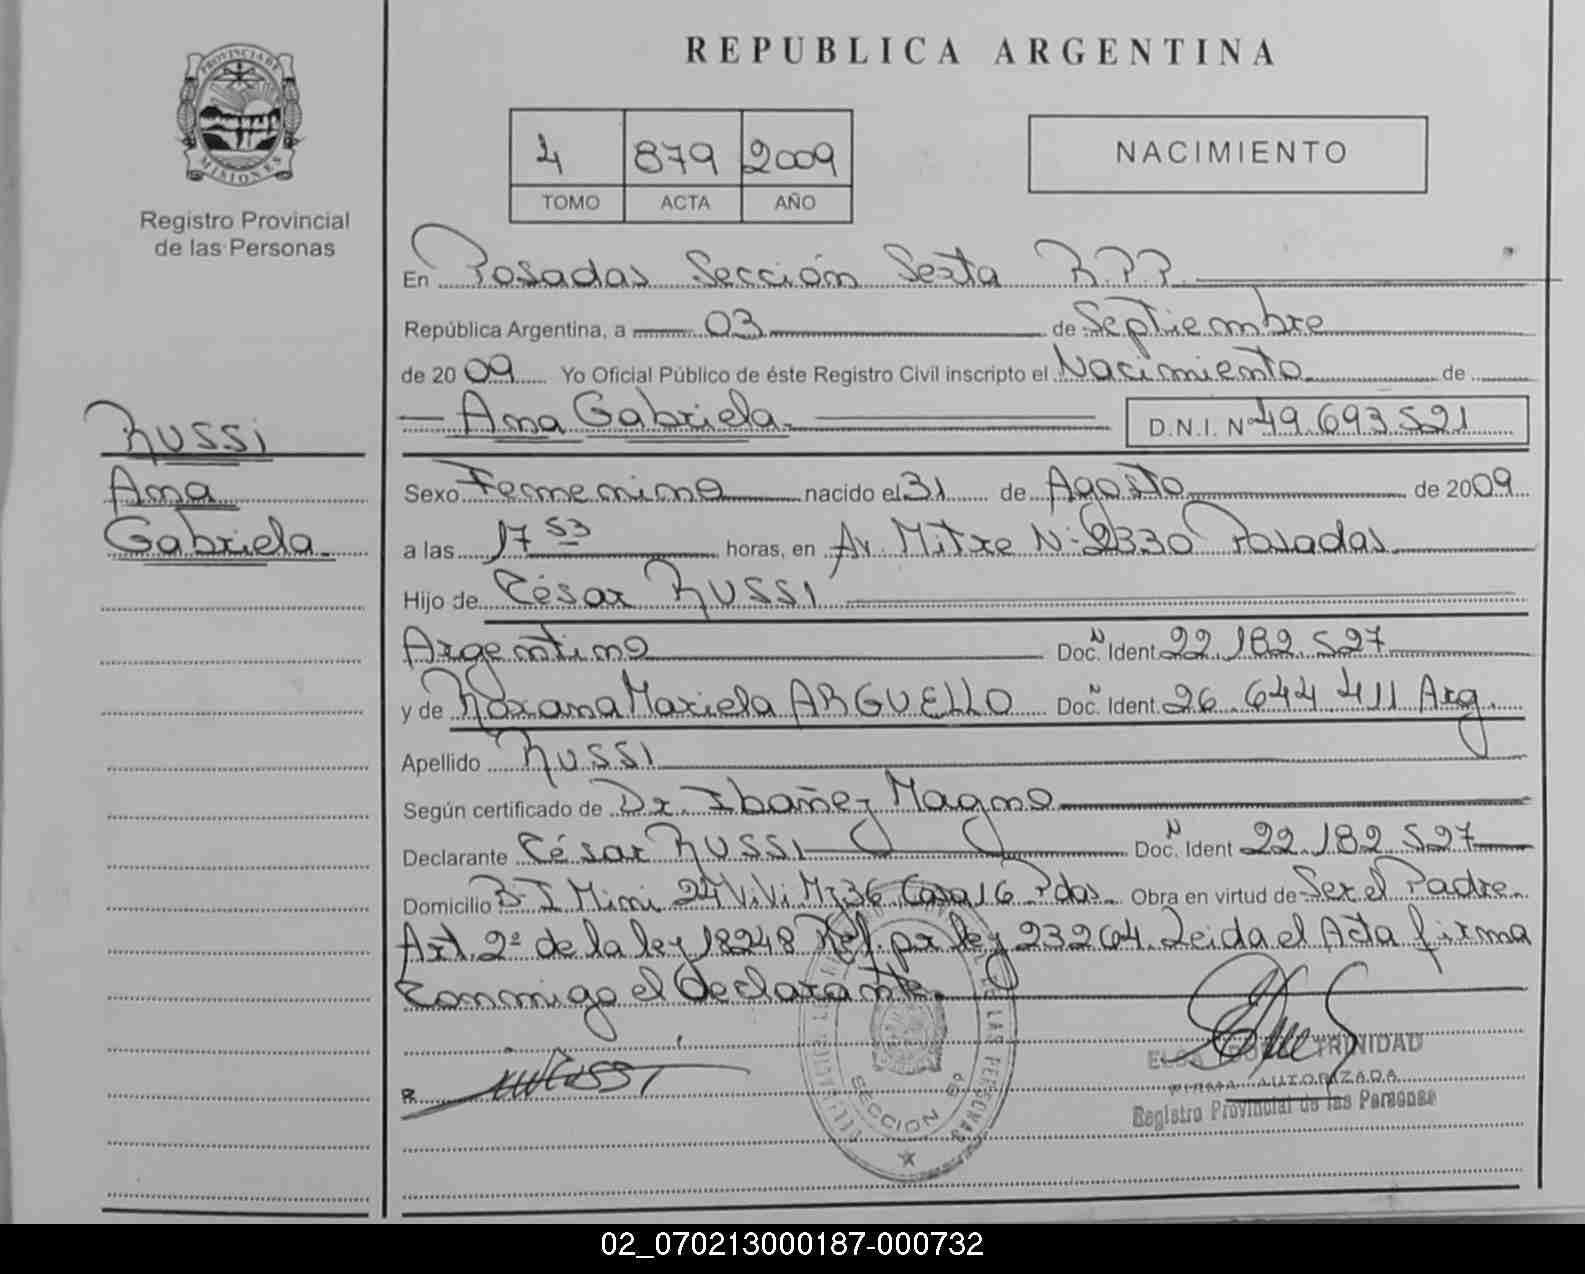 PROVINCIA DE
MISIONES
Registro Provincial
de las Personas
RUSSI
Ana
Gabriela
REPUBLICA ARGENTINA
4 879 2009
TOMO ACTA AÑO
NACIMIENTO
En Posadas Sección Sexta R.P.P.
República Argentina, a 03 de Septiembre
de 2009 Yo Oficial Público de éste Registro Civil inscripto el Nacimiento de
Ana Gabriela D.N.I. Nº 49.693.521
Sexo Femenino nacido el 31 de Agosto de 2009
a las 17 53 horas, en Av. Mitre Nº 2330 Posadas
Hijo de César RUSSI
Argentino Doc. N Ident. 22.182.527
y de Roxana Mariela ARGUELLO Doc. N Ident. 26.644.411 Arg.
Apellido RUSSI
Según certificado de Dr. Ibañez Magno
Declarante César RUSSI Doc. N Ident 22.182.527
Domicilio Bº I Miní 24 ViVi Mz 36 Casa 16 Pdas. Obra en virtud de Ser el Padre.
Art. 2º de la ley 18248 Ref. por ley 23264. Leida el Acta firma
conmigo el declarante.
TRINIDAD
FIRMA AUTORIZADA
Registro Provincial de las Personas
SECCION 6ª
02_070213000187-000732